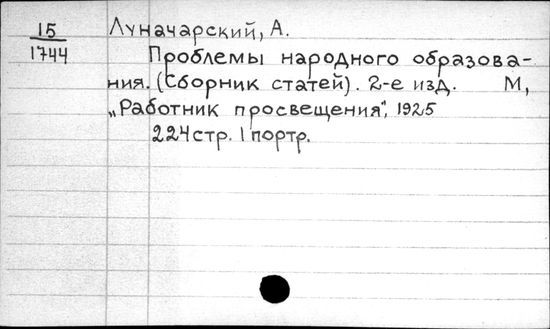 15 Луначарский, А.
1744 Проблемы народного образова-
ния. (Сборник статей). 2-е изд. М,
„Работник просвещения", 1925
224 стр. 1 портр.